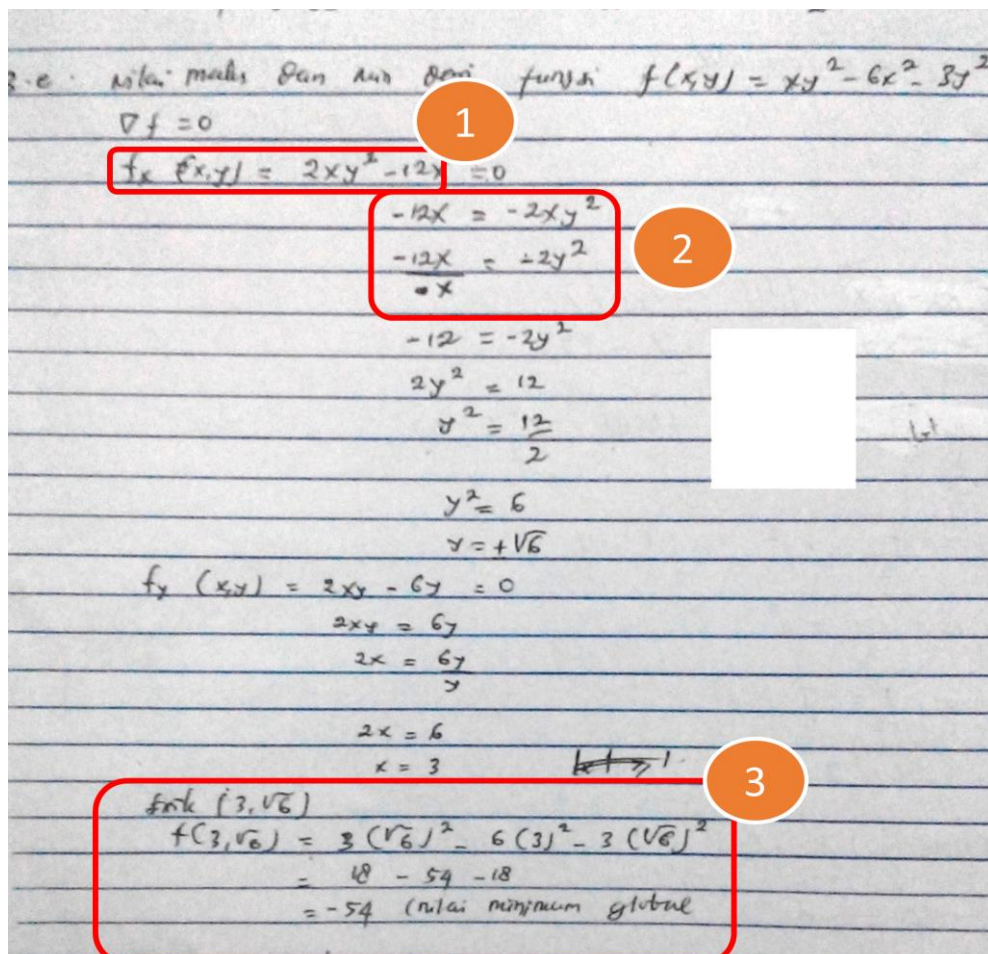 2.e. nilai maks dan min dari fungsi f(x,y) = xy² - 6x² - 3y²
∇f = 0
1
fx (x,y) = 2xy² - 12x = 0
-12x = -2xy²
2
-12x/x = -2y²
-12 = -2y²
2y² = 12
y² = 12/2
y² = 6
y = ±√6
fy (x,y) = 2xy - 6y = 0
2xy = 6y
2x = 6y/y
2x = 6
x = 3
3
titik (3,√6)
f(3,√6) = 3(√6)² - 6(3)² - 3(√6)²
= 18 - 54 - 18
= -54 (nilai minimum global